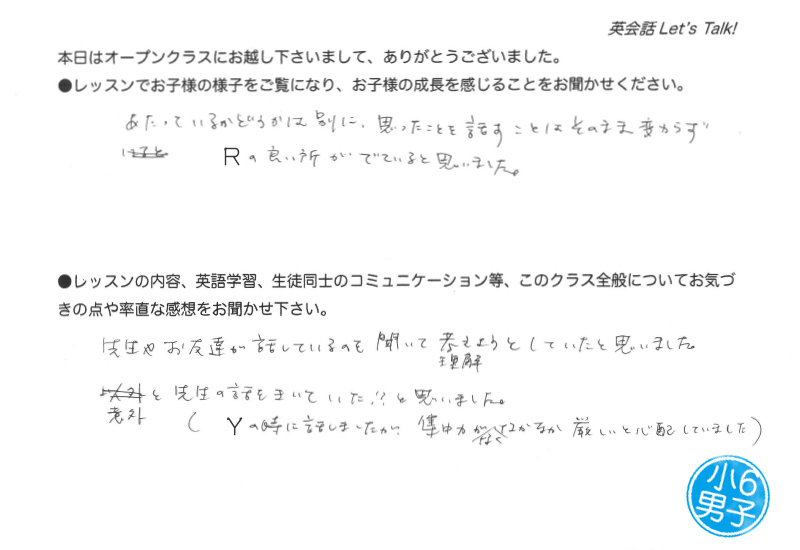 英会話 Let's Talk!
本日はオープンクラスにお越し下さいまして、ありがとうございました。
●レッスンでお子様の様子をご覧になり、お子様の成長を感じることをお聞かせください。
あたっているかどうかは別に、思ったことを話すことはそのまま変わらず
Rの良い所がでていると思いました。
●レッスンの内容、英語学習、生徒同士のコミュニケーション等、このクラス全般についてお気づ
きの点や率直な感想をお聞かせ下さい。
先生やお友達が話しているのも聞いて考えようとしていたと思いました。
理解
以外と先生の話をきいていた!?と思いました。
意外
(Yの時に話しましたが、集中力がなくなかなか厳しいと心配していました)
小6
男子